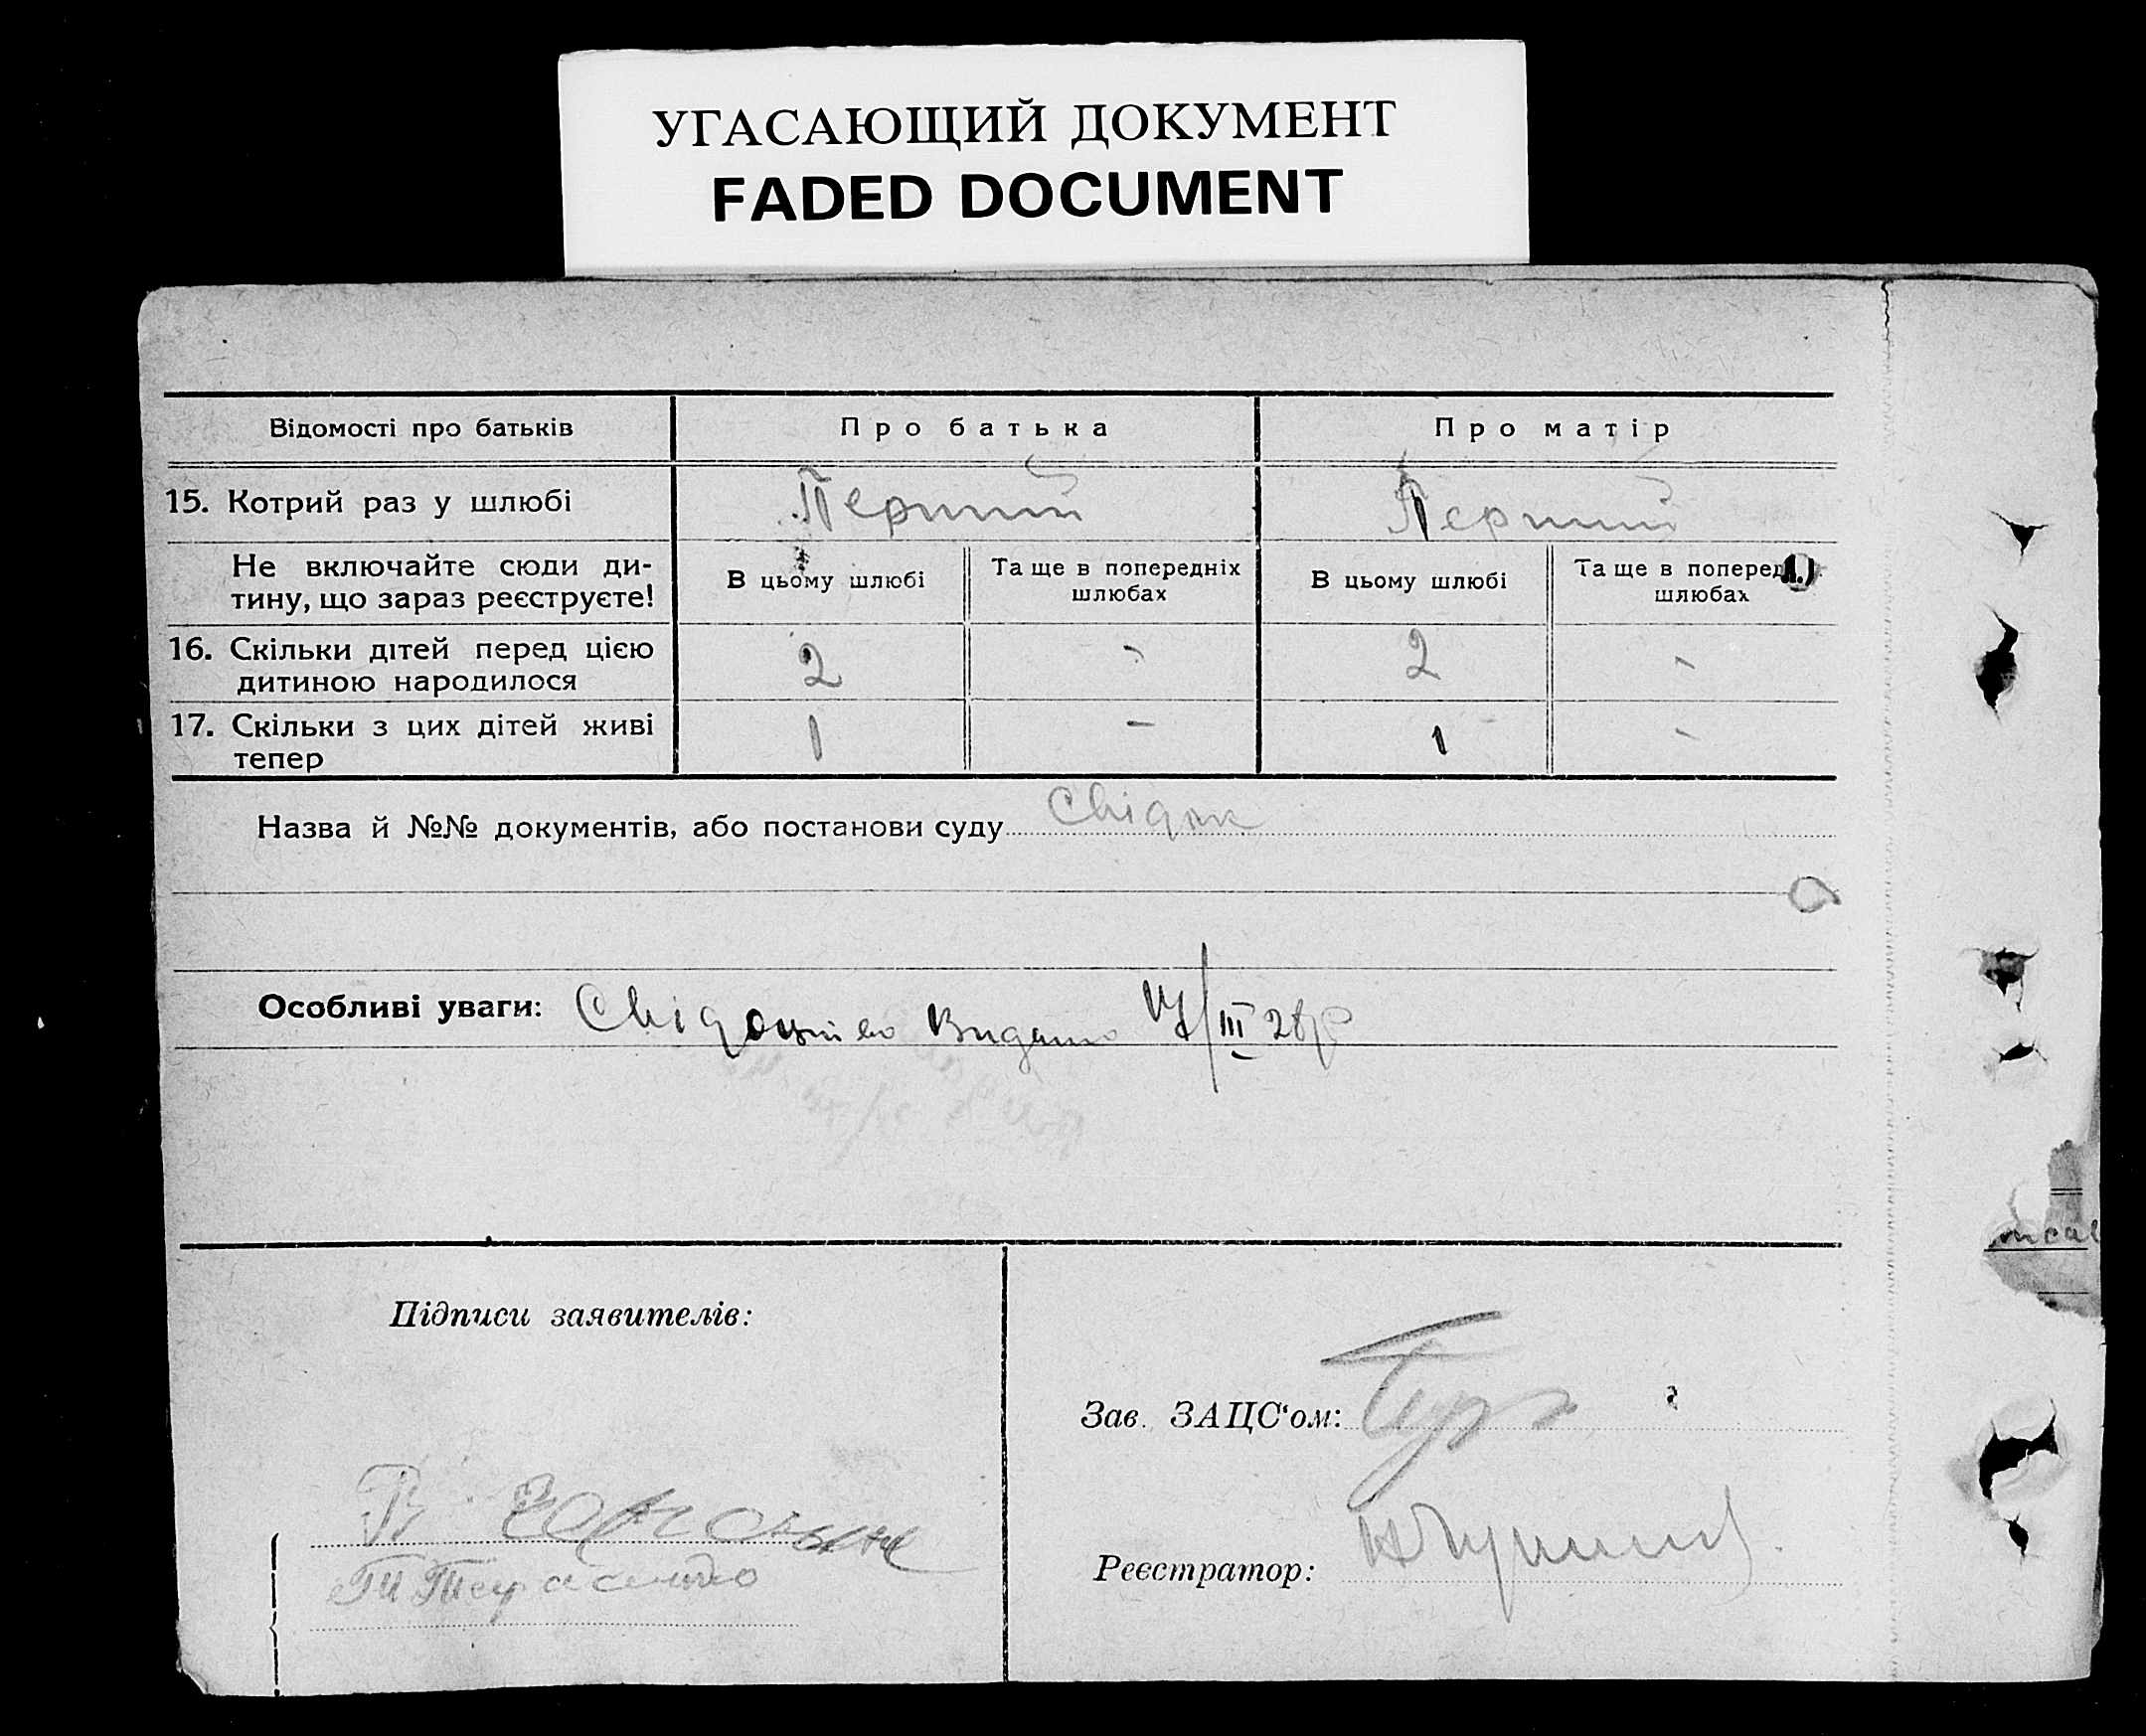 УГАСАЮЩИЙ ДОКУМЕНТ
FADED DOCUMENT
Відомості про батьків
Про батька
Про матір
15. Котрий раз у шлюбі
Перший
Перший
Не включайте сюди ди-
тину, що зараз реєструєте!
В цьому шлюбі
Та ще в попередніх
шлюбах
В цьому шлюбі
Та ще в
шлюбах
16. Скільки дітей перед цією
дитиною народилося
2
-
2
-
17. Скільки з цих дітей живі
тепер
1
-
1
-
Назва й №№ документів, або постанови суду
Особливі уваги:
Видано
III
Підписи заявителів:
Зав. ЗАЦС'ом:
Реєстратор: